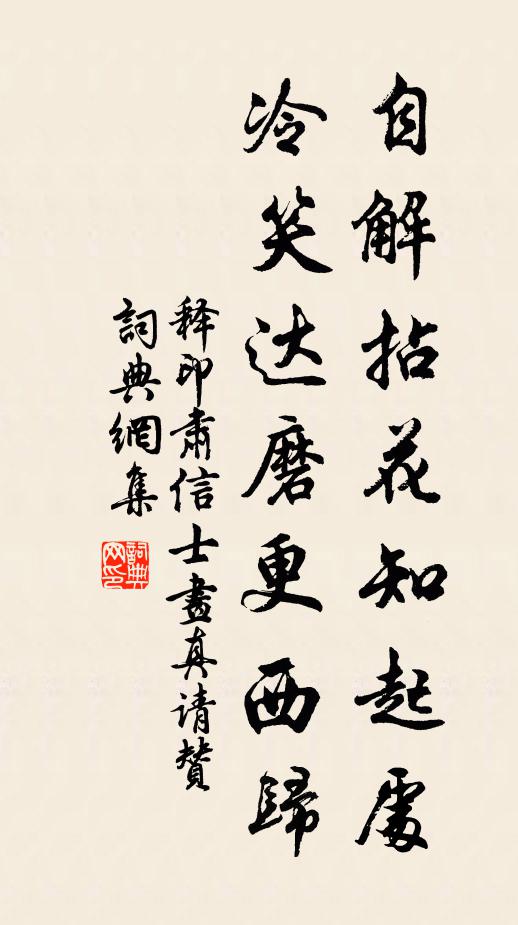 自解拈花知起處
冷笑达磨更西歸
释印肅信士畫真请贊
詞典網集
詞典網印